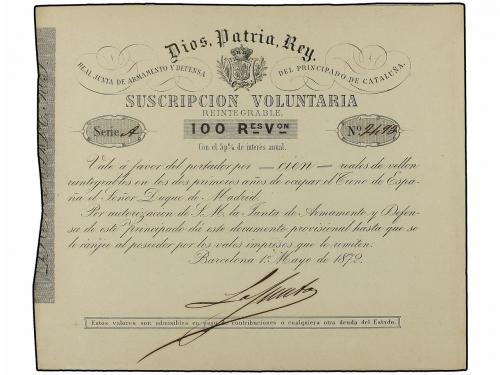 Dios, Patria, Rey.
REAL JUNTA DE ARMAMENTO Y DEFENSA DEL PRINCIPADO DE CATALUÑA.
SUSCRIPCION VOLUNTARIA
REINTEGRABLE,
Serie A 100 Rᴱˢ Vᴼᴺ Nº
Con el 5p% de interés anual.
Vale á favor del portador por cien reales de vellon
reintegrables en los dos primeros años de ocupar el Trono de Espa-
ña el Señor Duque de Madrid.
Por autorizacion de S. M. la Junta de Armamento y Defen-
sa de este principado dá este documento provisional hasta que se
le canjee al poseedor por los vales impresos que le remiten:
Barcelona 1º Mayo de 1872.
La Junta
Estos valores son admisibles en pago de contribuciones ó cualquiera otra deuda del Estado.